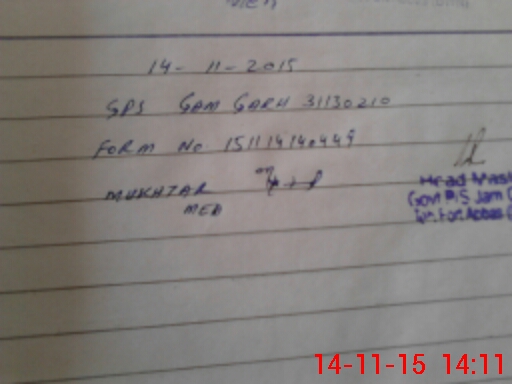 14-11-2015
GPS GAM GARH 31130210
FORM No 151114140449
MUKHTAR
MEA
Head Mast
Govt P/S Jam G
14-11-15 14:11